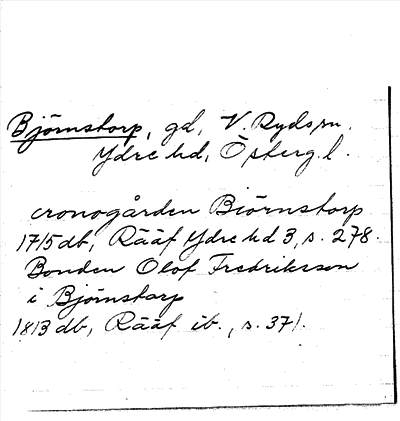 Björnstorp, gd, V. Ryds sn.
Ydre hd, Österg. l.
cronogården Biörnstorp
1715 db, Rääf Ydre hd 3, s. 278.
Bonden Olof Fredriksson
i Björnstorp
1813 db, Rääf ib., s. 371.